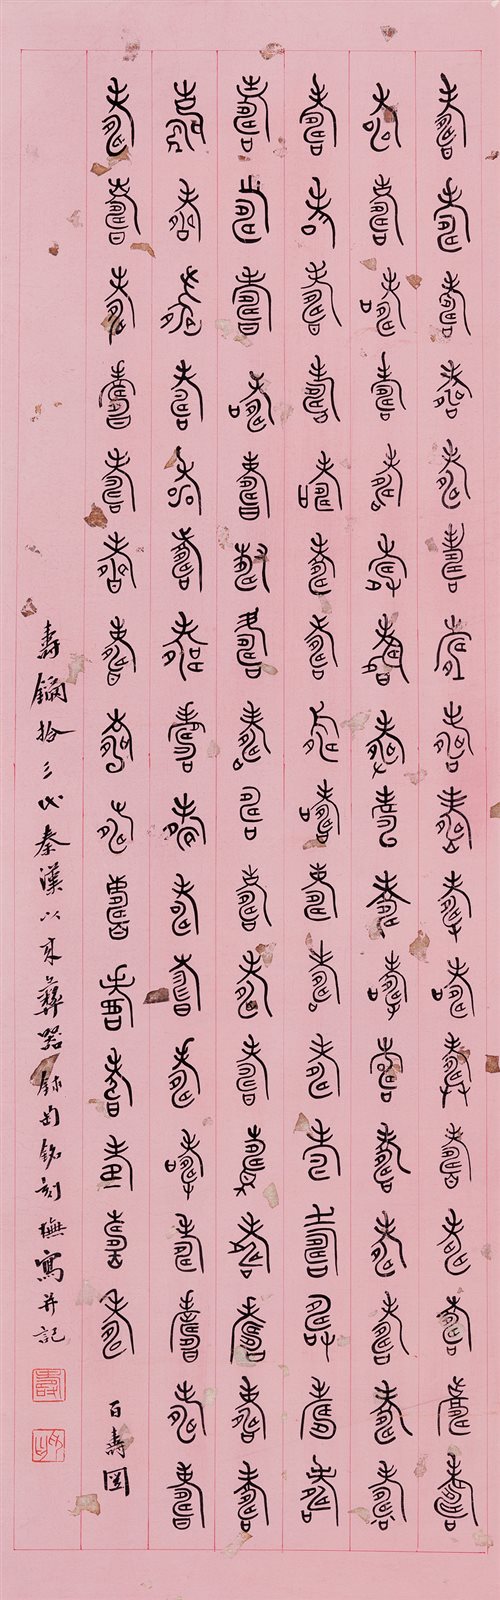 壽壽壽壽壽壽壽壽壽壽壽壽壽壽壽壽壽
壽壽壽壽壽壽壽壽壽壽壽壽壽壽壽壽壽
壽壽壽壽壽壽壽壽壽壽壽壽壽壽壽壽壽
壽壽壽壽壽壽壽壽壽壽壽壽壽壽壽壽壽
壽壽壽壽壽壽壽壽壽壽壽壽壽壽壽壽壽
壽壽壽壽壽壽壽壽壽壽壽壽壽壽壽百壽圖
壽鑈拾三代秦漢以來彝器鉥匋銘刻橅寫并記